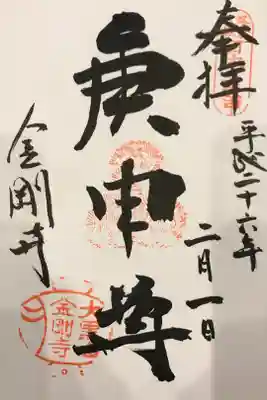 奉拝
平成二十六年
二月一日
庚申尊
金剛寺
金剛寺